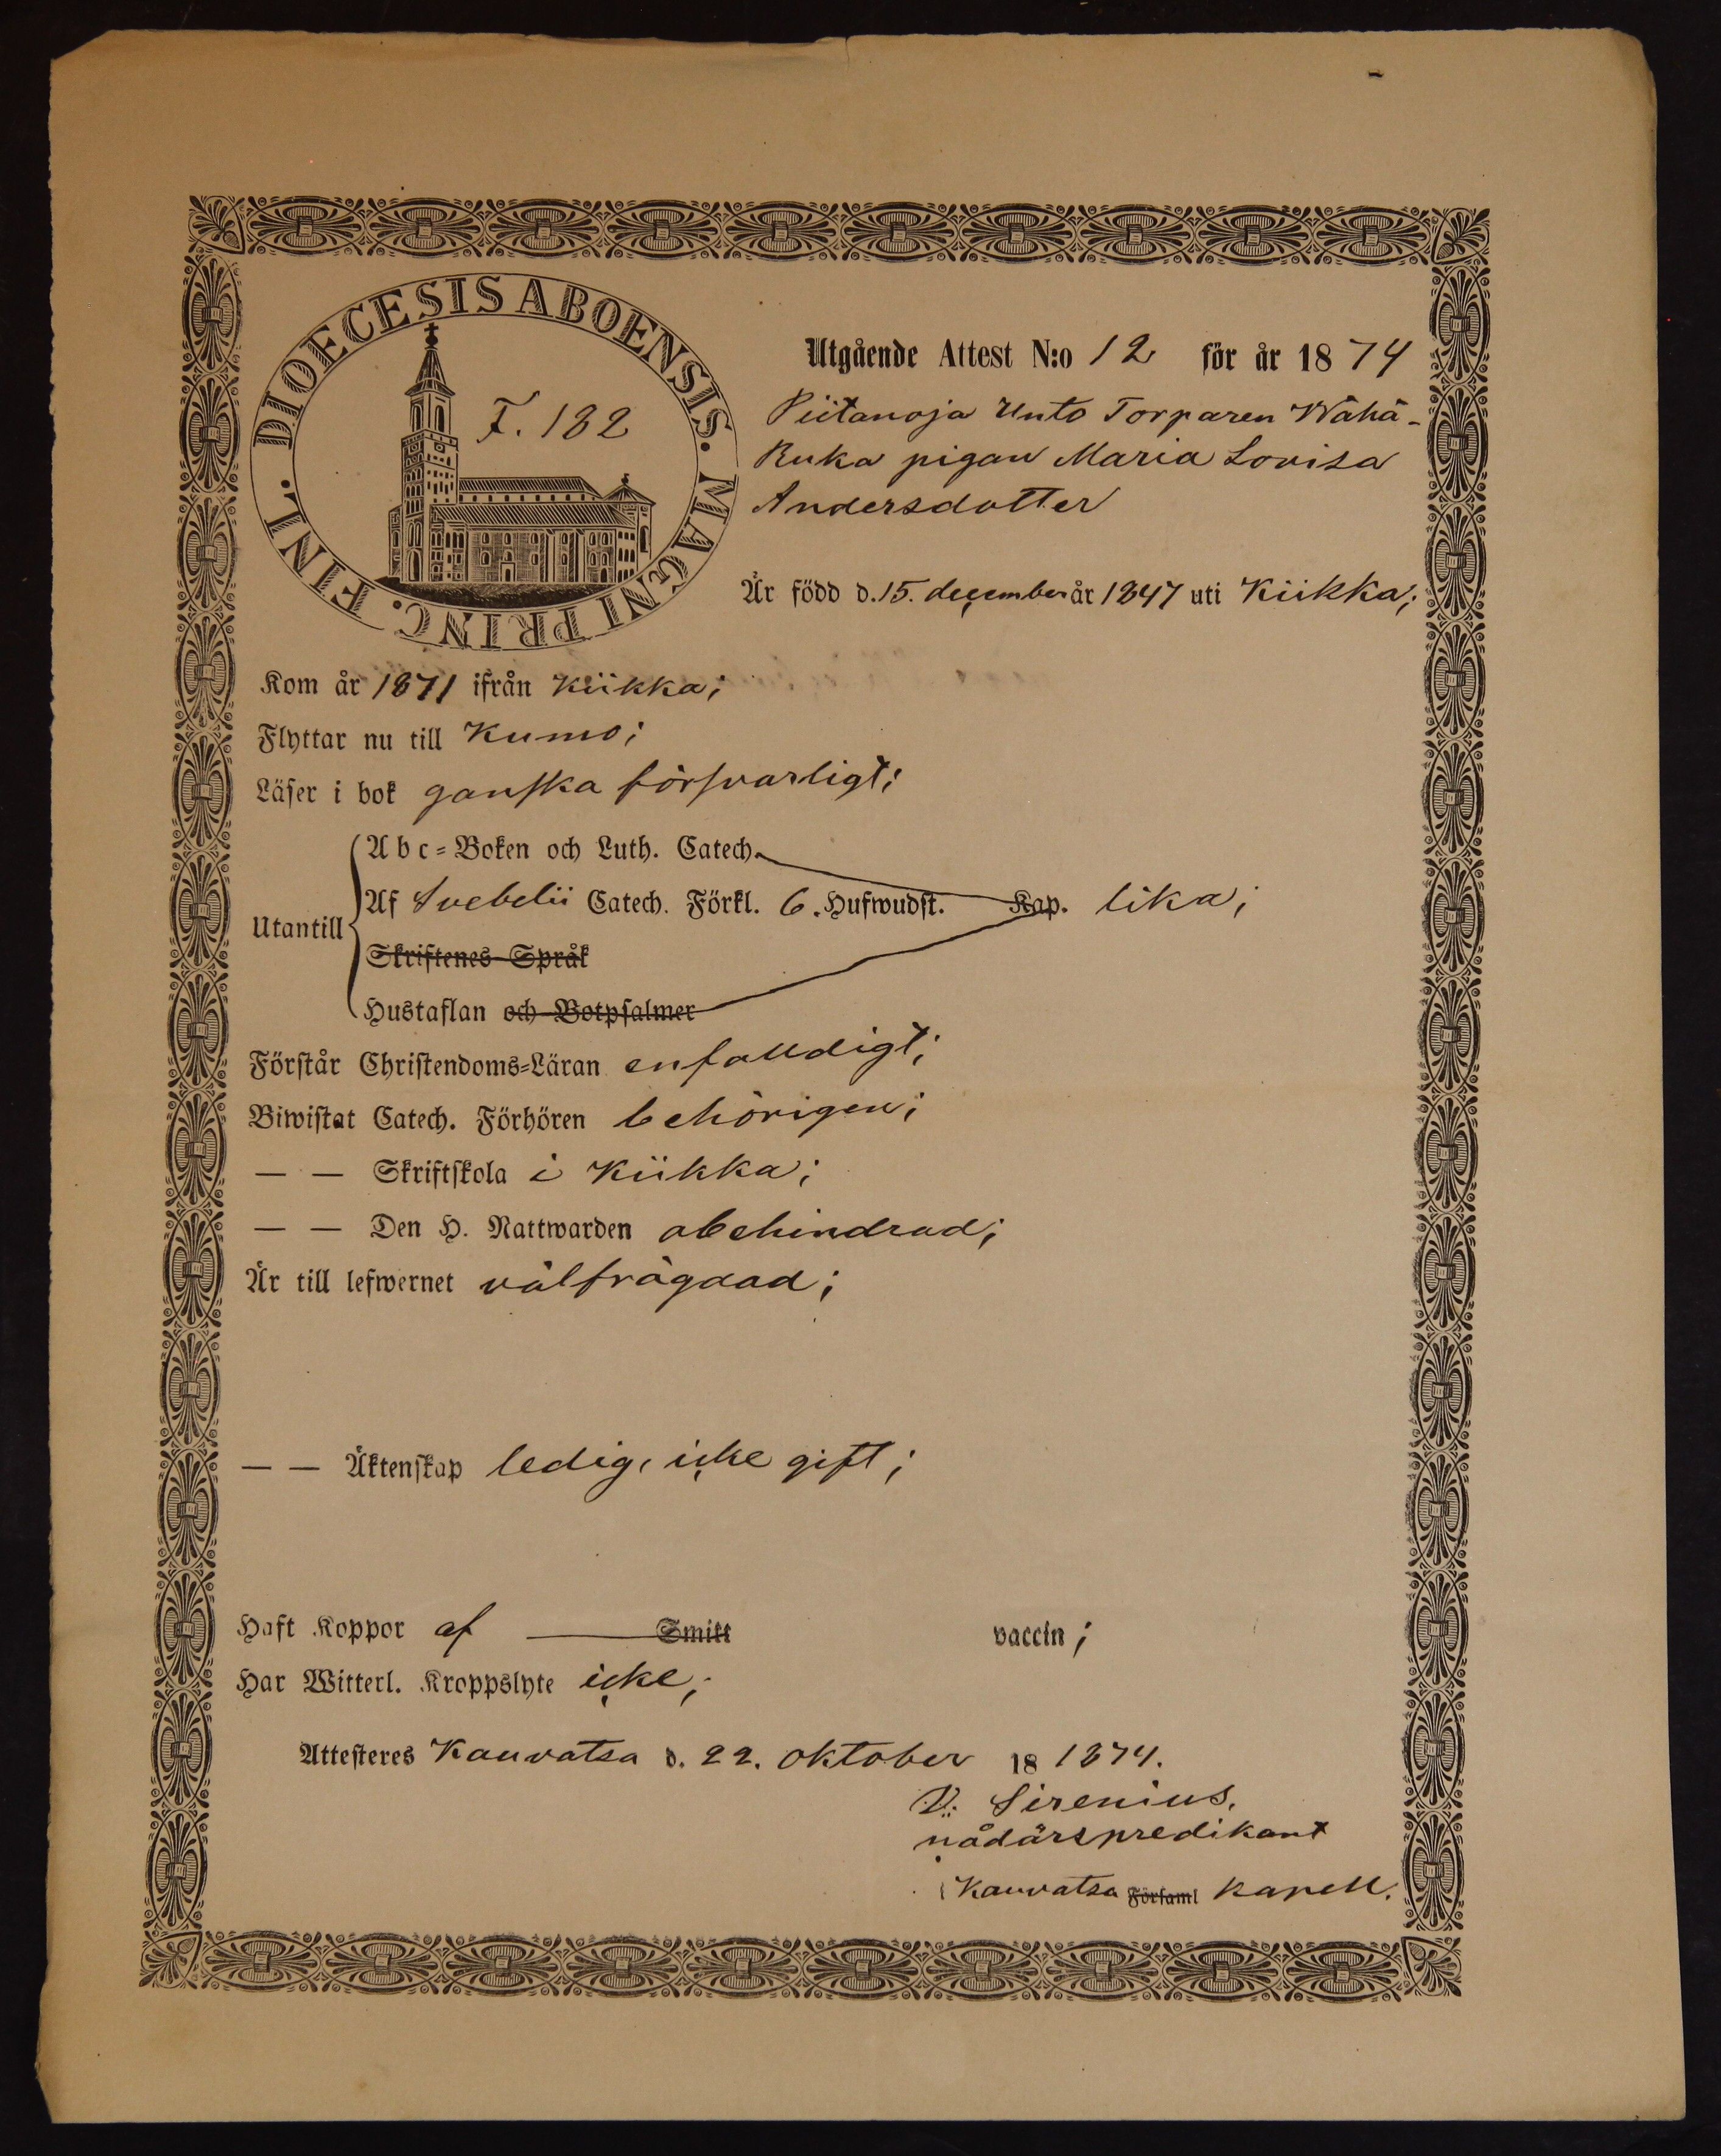 DIOECESIS ABOENSIS. MAGNI PRINC. FINL.
F. 182
Utgående Attest N:o 12 för år 1874
Piitanoja Unto Torparen Wähä-
Ruka pigan Maria Lovisa
Andersdotter
Är född d. 15. december år 1847 uti Kiikka;
Kom år 1871 ifrån Kiikka;
Flyttar nu till Kumo;
Läser i bok ganska försvarligt;
Utantill
Abc-Boken och Luth. Catech.
Af Svebelii Catech. Förkl. 6. Hufwudst. Kap. lika;
Skriftenes Språk
Hustaflan och Botpsalmer
Förstår Christendoms-Läran enfalldigt;
Biwistat Catech. Förhören behörigen;
— — Skriftskola i Kiikka;
— — Den H. Nattwarden obehindrad;
Är till lefwernet välfrägdad;
— — Äktenskap ledig, icke gift;
Haft Koppor af Smitt vaccin;
Har Witterl. Kroppslyte icke;
Attesteres Kauvatsa d. 22. oktober 18 1874.
V. Sirenius,
nådårspredikant
i Kauvatsa Församl kapell.